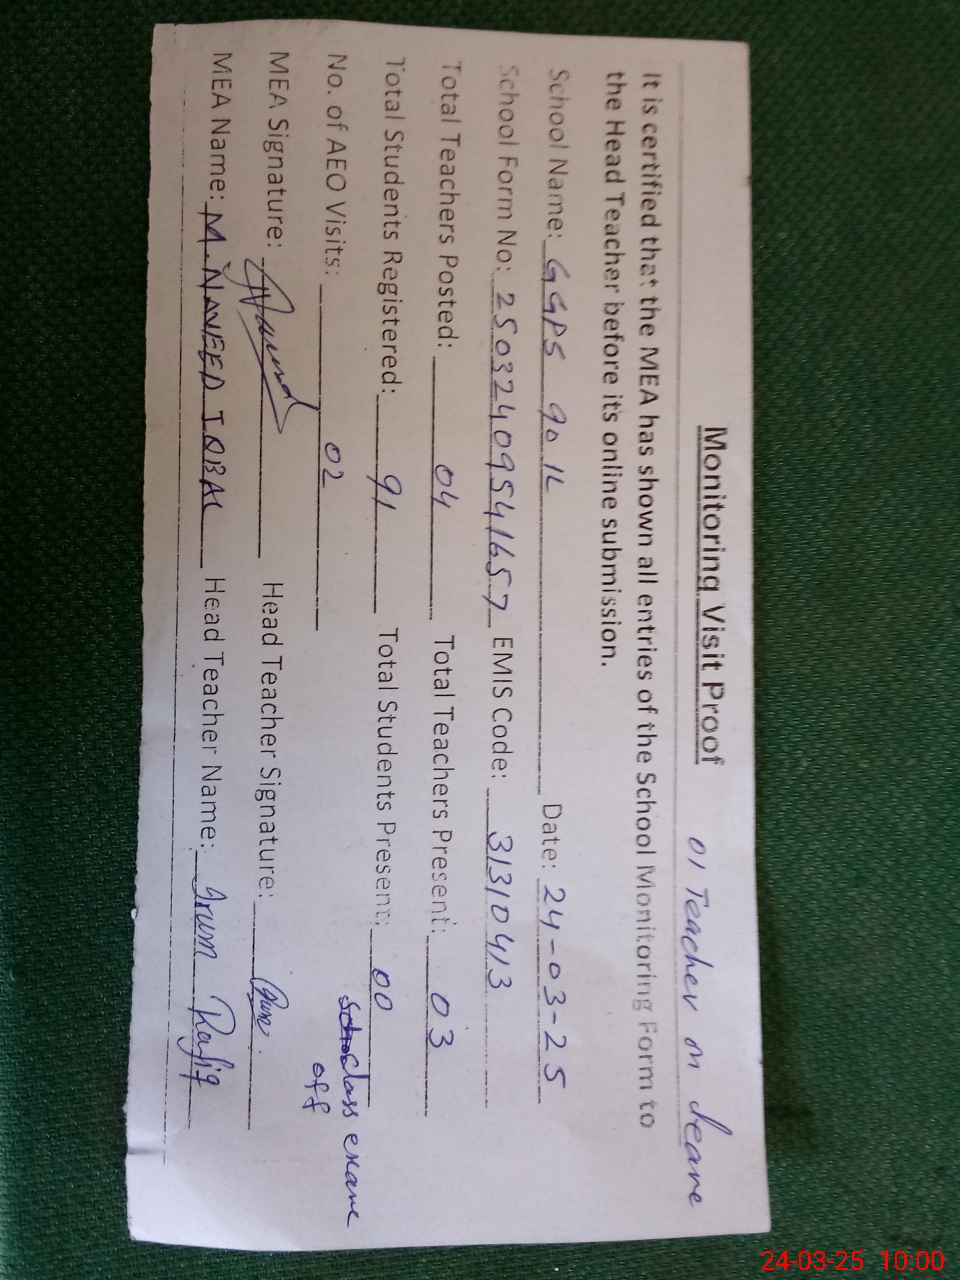 Monitoring Visit Proof 01 Teacher on leave
It is certified that the MEA has shown all entries of the School Monitoring Form to
the Head Teacher before its online submission.
School Name: GGPS 90 1L Date: 24-03-25
School Form No: 25032409541657 EMIS Code: 31310413
Total Teachers Posted: 04 Total Teachers Present: 03
Total Students Registered: 91 Total Students Present: 00
class exam
off
No. of AEO Visits: 02
MEA Signature: Head Teacher Signature:
MEA Name: M. NAVEED IQBAL Head Teacher Name: Irum Rafiq
24-03-25 10:00